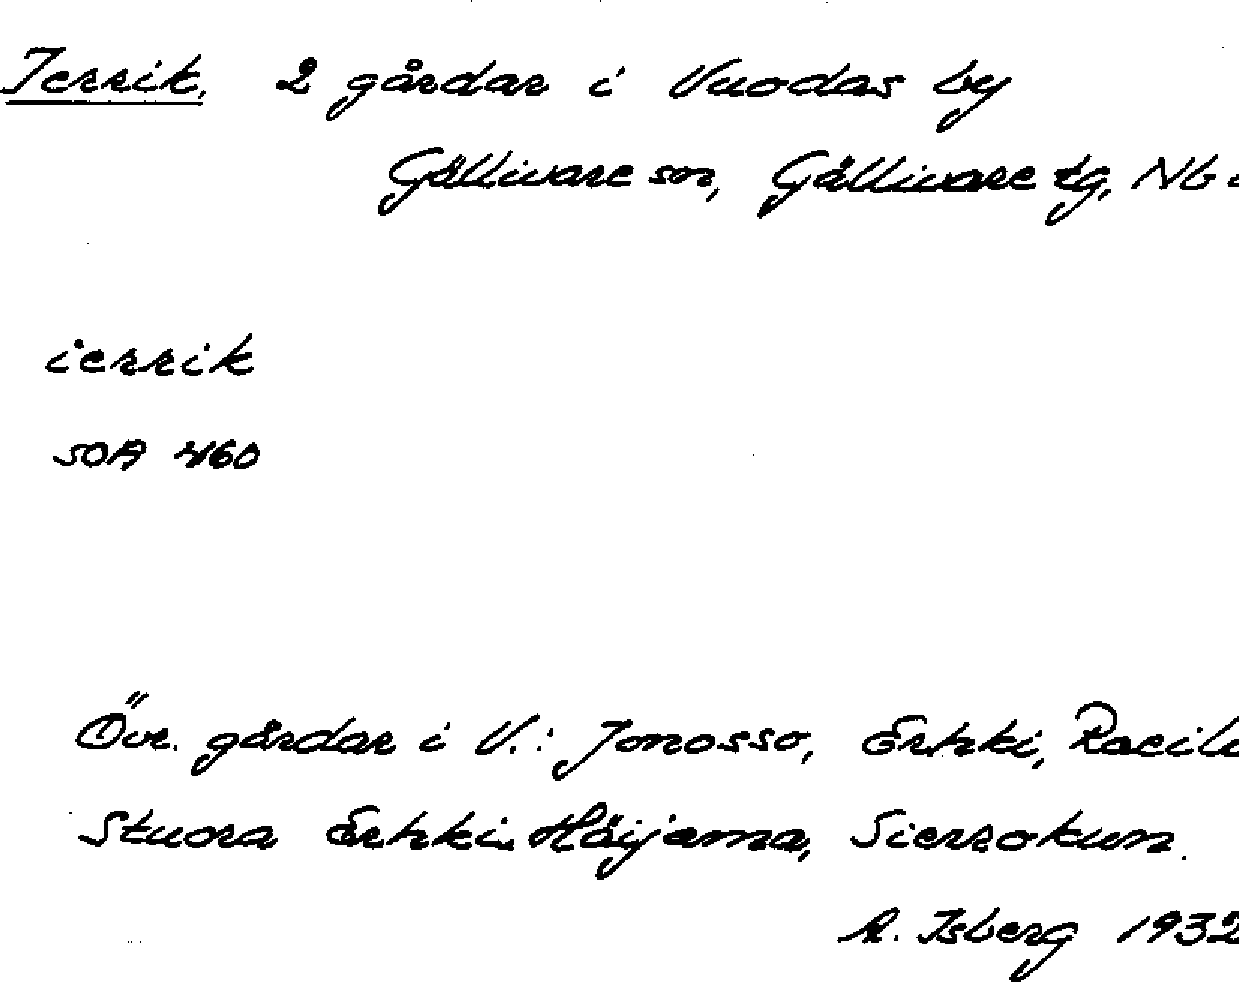 Ierrik, 2 gårdar i Vuodas by
Gällivare sn, Gällivare tg, Nb
ierrik
SOA 460
Övr. gårdar i V.: Jonosso, Erhki,
Stuora Erhki, Häijema, Sierrokum.
A. Isberg 1932